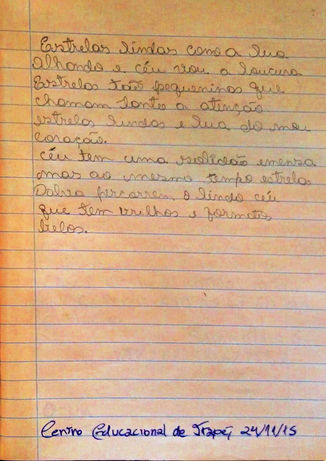 Estrelas lindas como a lua
Olhando o céu vou a loucura
Estrelas tão pequeninas que
chamam tanto a atenção
estrelas lindas e lua do meu
coração.
céu tem uma solidão imensa
mas ao mesmo tempo estrelas
percorrem o lindo céu
que tem brilhos e formatos
belos.
Centro Educacional de Irapé, 24/11/15